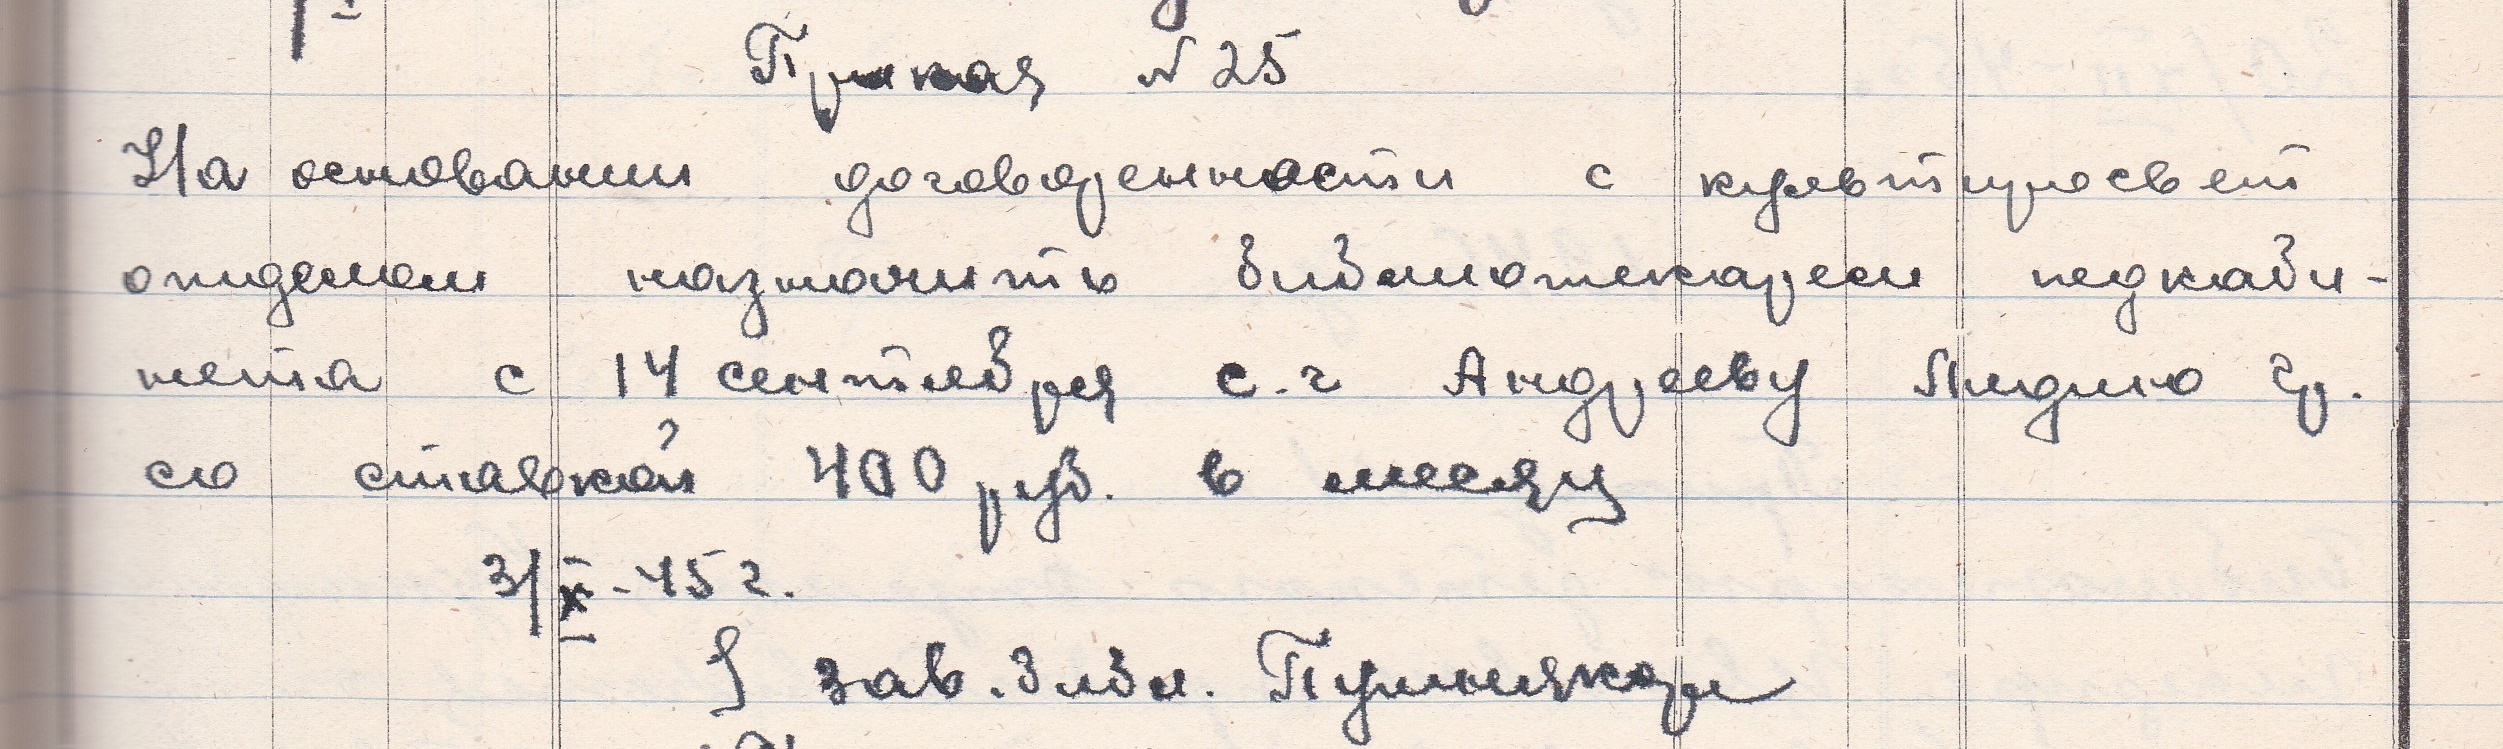 Приказ №25
На основании договоренности с культпросвет
отделом назначить библиотекарем педкаби-
нета с 14 сентября с.г Андрееву Лидию Гр.
со ставкой 400 руб. в месяц
3/X-45 г.
зав. библ.